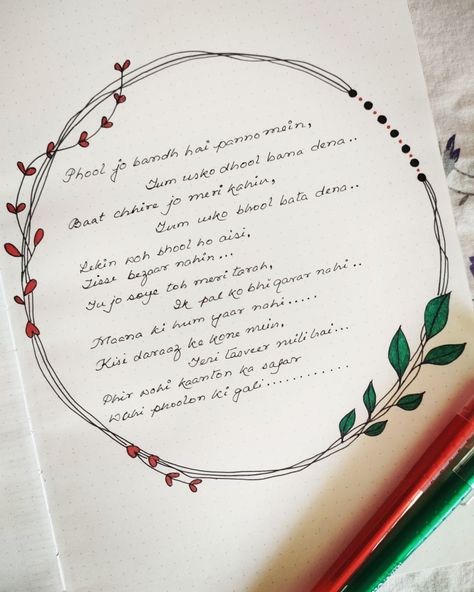 Phool jo bandh hai panno mein,
Tum usko dhool bana dena..
Baat chhire jo meri kahin,
Tum usko bhool bata dena..
Lekin woh bhool ho aisi,
Jisse bezaar nahin...
Tu jo soye toh meri tarah,
Ik pal ko bhi qarar nahi..
Maana ki hum yaar nahi.....
Kisi daraaz ke kone mein,
Teri tasveer mili hai...
Phir wohi kaanton ka safar
Wahi phoolon ki gali.............